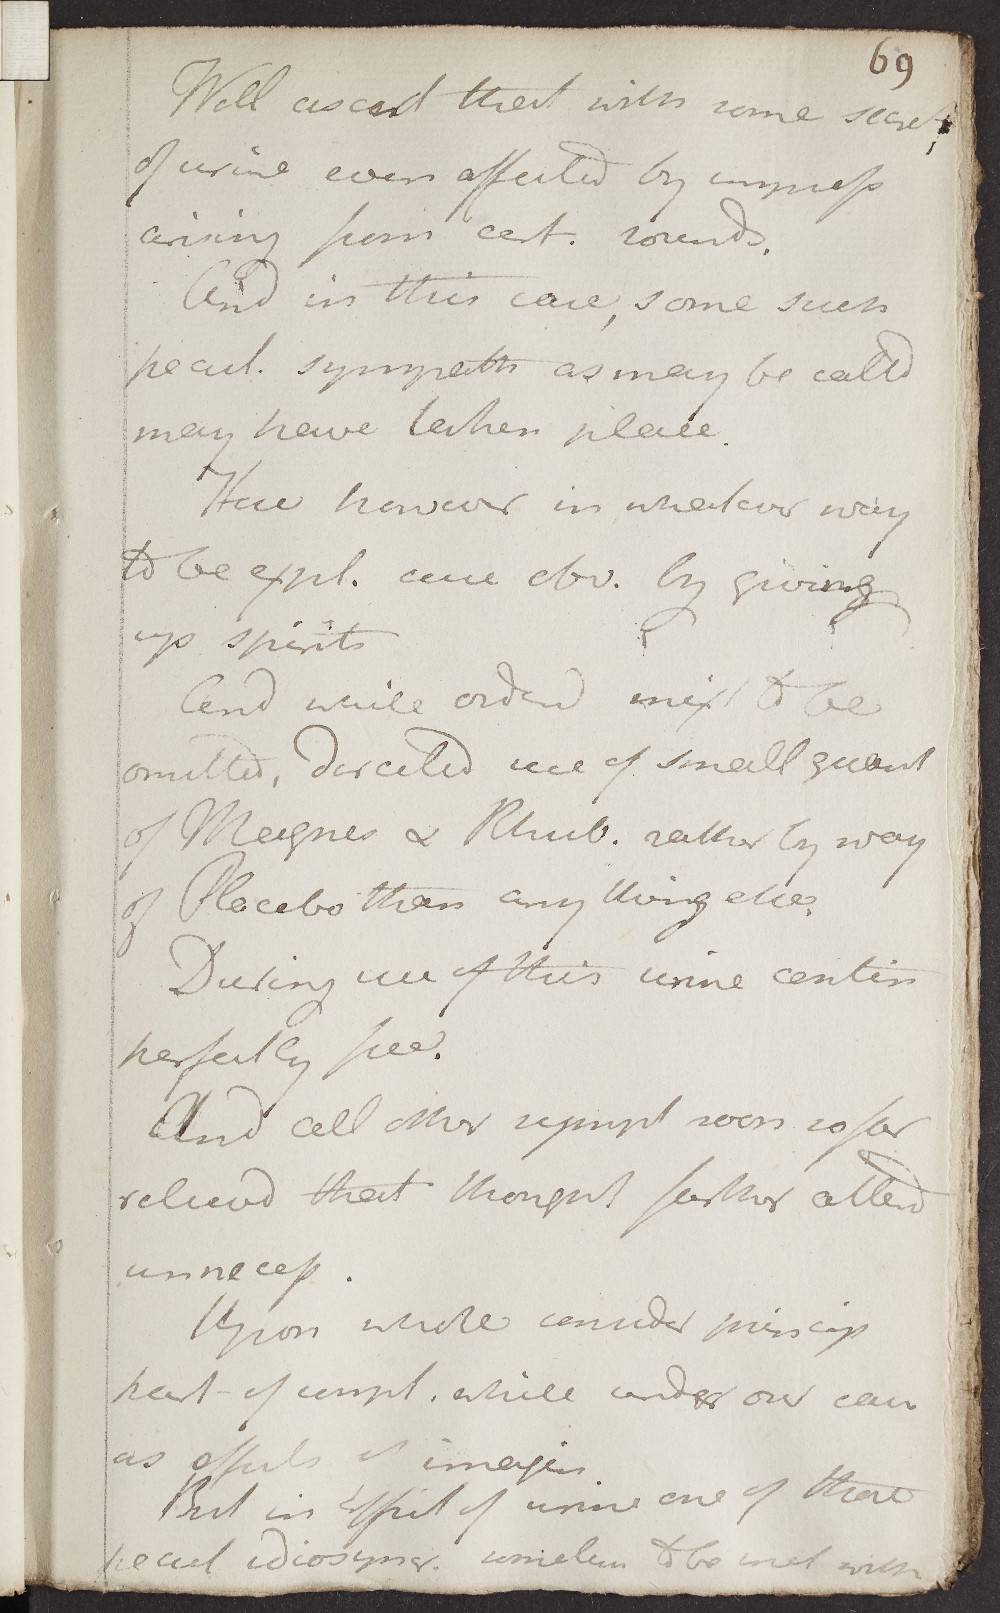 69
Well ascert that with some secret
of urine even affected by impress
arising from cert. sounds.
And in this case, some such
pecul. sympath as may be called
may have taken place.
Here however in whatever way
to be expl. cure obv. by giving
up spirits
And while ordered mixt to be
omitted, directed use of small quant
of Magnes & Rhub. rather by way
of Placebo than any thing else.
During use of this urine contin
perfectly free.
And all other sympt soon so far
relieved that thought further attend
unnecess.
Upon whole consider princip
part of compl. while under our care
as effects of imagin
But in diffict of urine one of those
pecul idiosyncr. sometim to be met with